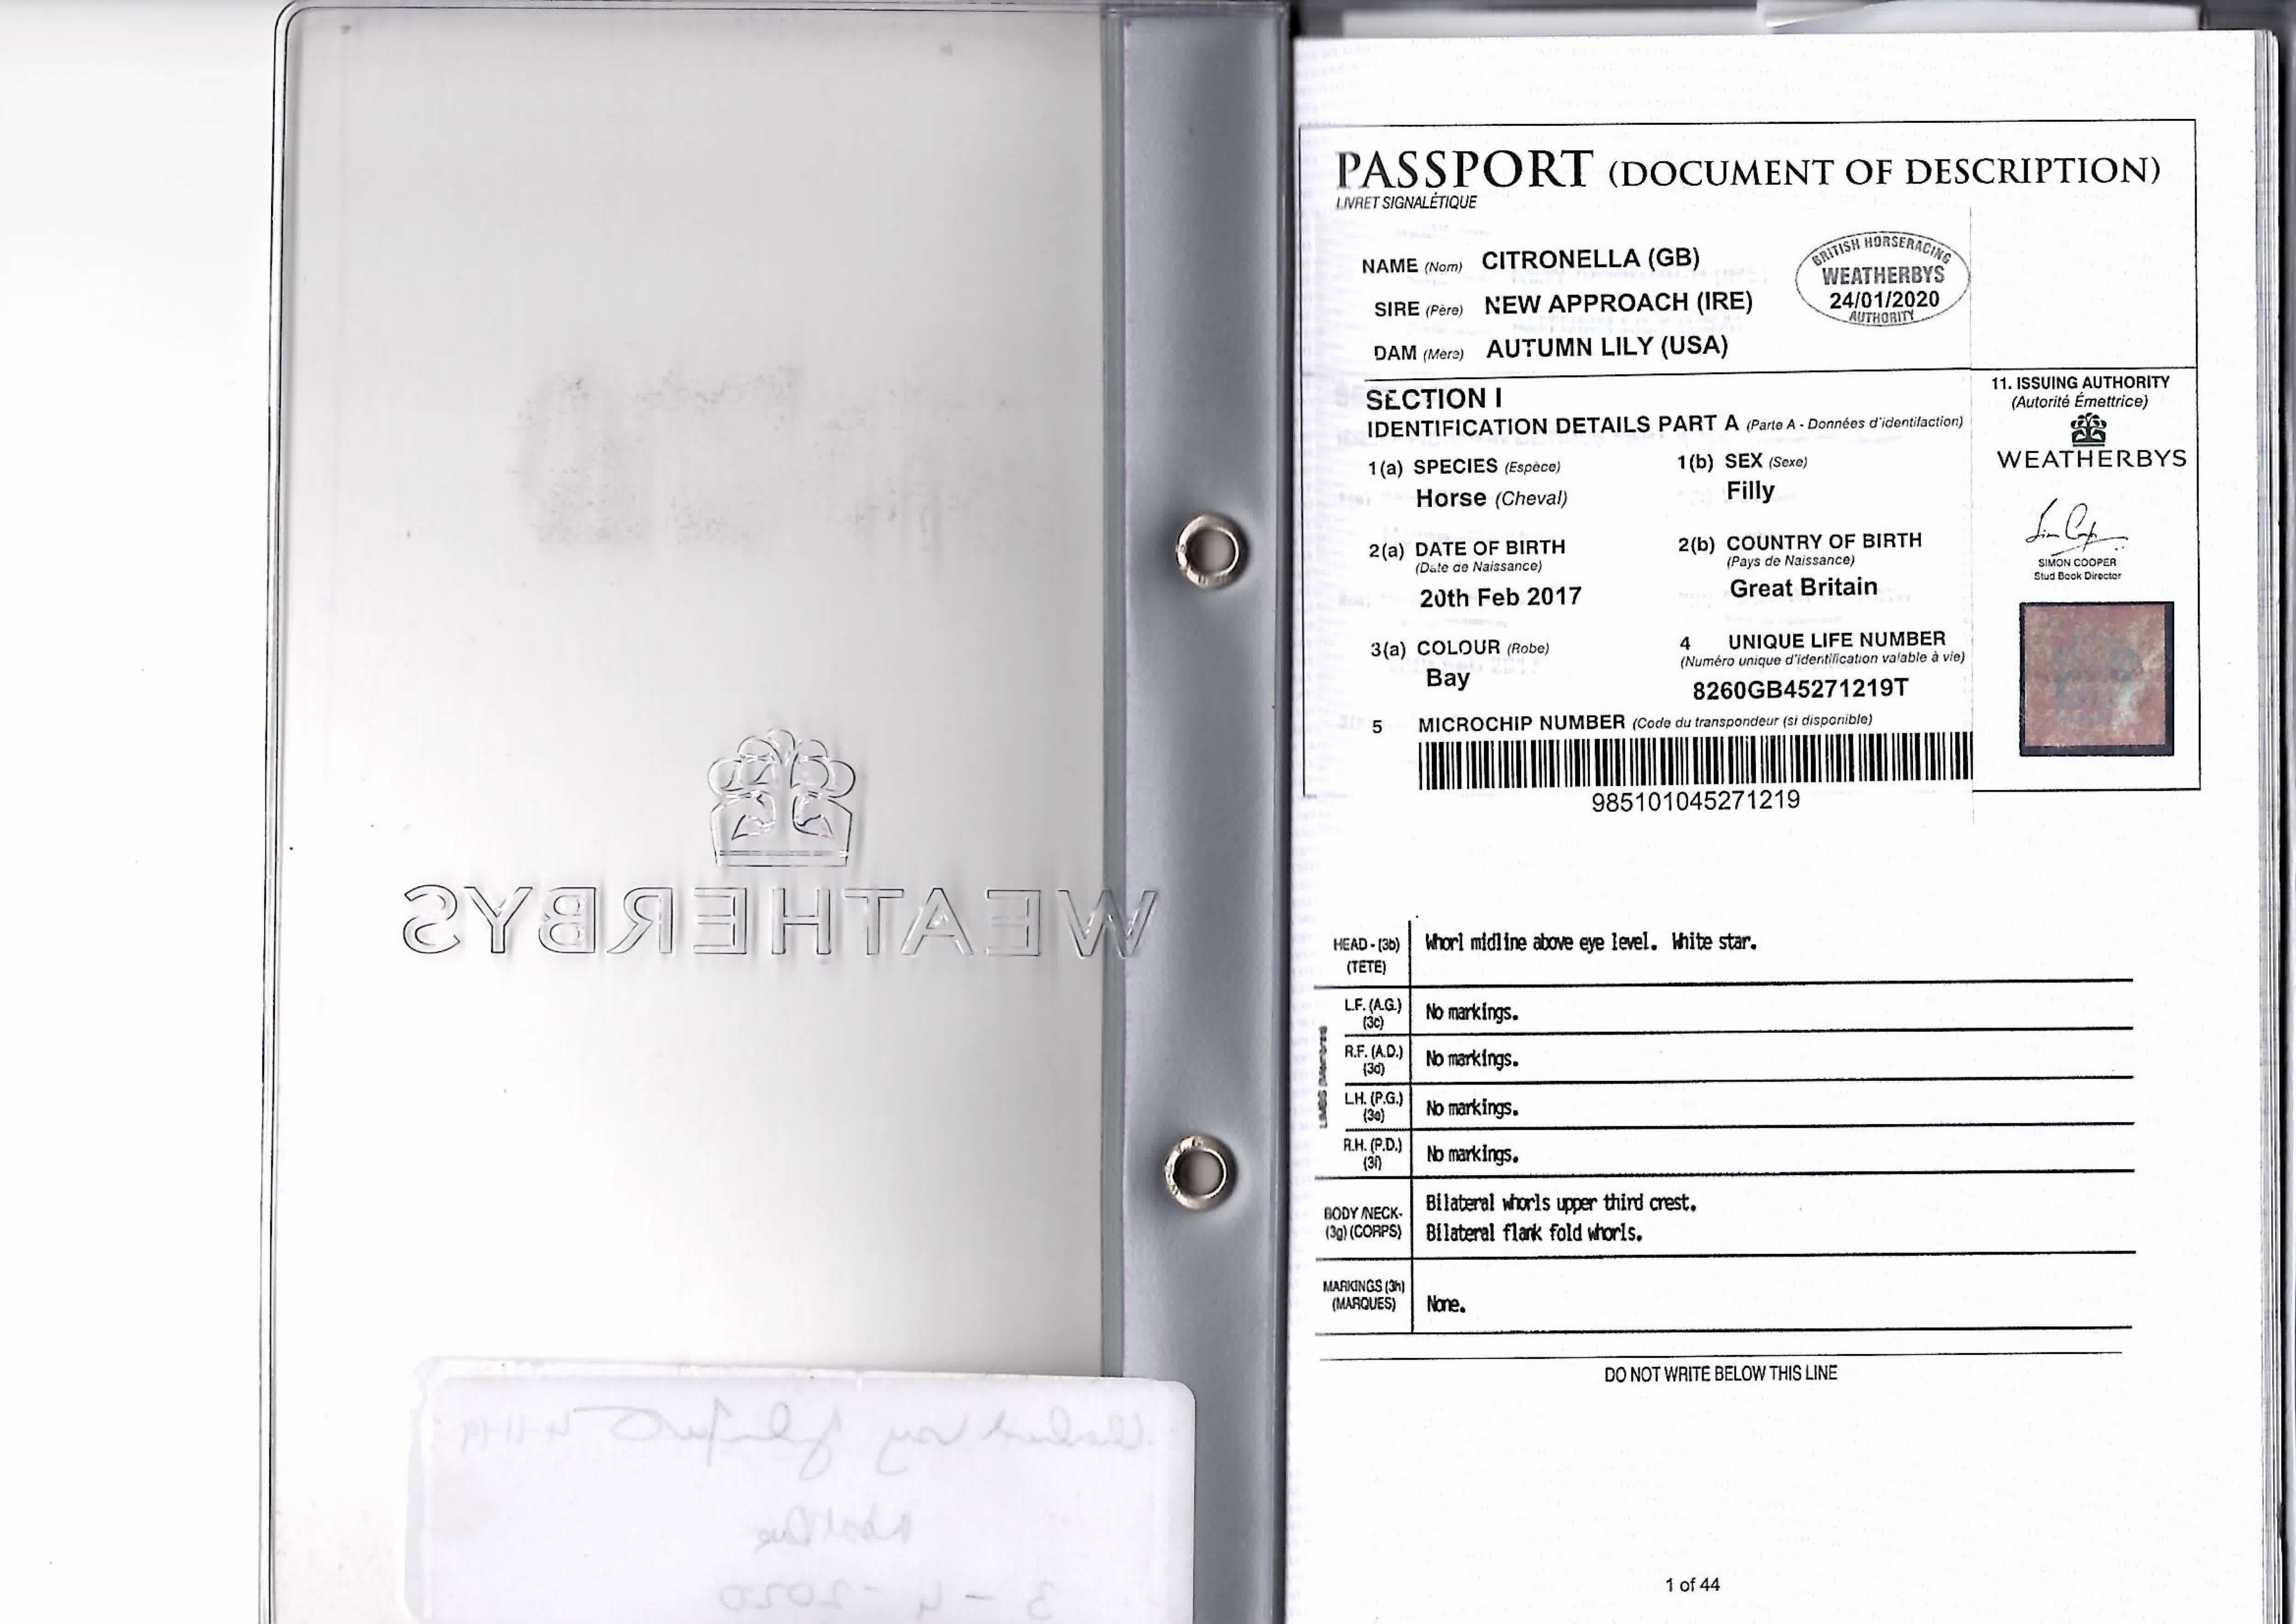 WEATHERBYS
Next Due
3 - 4 - 2020
PASSPORT (DOCUMENT OF DESCRIPTION)
LIVRET SIGNALÉTIQUE
NAME (Nom) CITRONELLA (GB)
SIRE (Père) NEW APPROACH (IRE)
DAM (Mère) AUTUMN LILY (USA)
BRITISH HORSERACING
WEATHERBYS
24/01/2020
AUTHORITY
SECTION I
IDENTIFICATION DETAILS PART A (Parte A - Données d'identifaction)
1(a) SPECIES (Espèce)
Horse (Cheval)
1(b) SEX (Sexe)
Filly
2(a) DATE OF BIRTH
(Date de Naissance)
20th Feb 2017
2(b) COUNTRY OF BIRTH
(Pays de Naissance)
Great Britain
3(a) COLOUR (Robe)
Bay
4 UNIQUE LIFE NUMBER
(Numéro unique d'identification valable à vie)
8260GB45271219T
5 MICROCHIP NUMBER (Code du transpondeur (si disponible)
985101045271219
11. ISSUING AUTHORITY
(Autorité Émettrice)
WEATHERBYS
SIMON COOPER
Stud Book Director
HEAD - (3b) Whorl midline above eye level. White star.
(TETE)
L.F. (A.G.) No markings.
(3c)
R.F. (A.D.) No markings.
(3d)
L.H. (P.G.) No markings.
(3e)
R.H. (P.D.) No markings.
(3f)
BODY/NECK- Bilateral whorls upper third crest.
(3g) (CORPS) Bilateral flank fold whorls.
MARKINGS (3h) None.
(MARQUES)
DO NOT WRITE BELOW THIS LINE
1 of 44